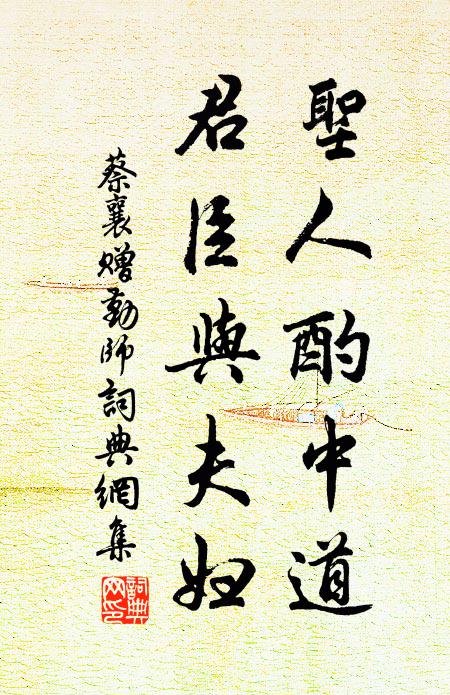 聖人酌中道
君臣與夫婦
蔡襄贈勤師詞典網集
詞典網印